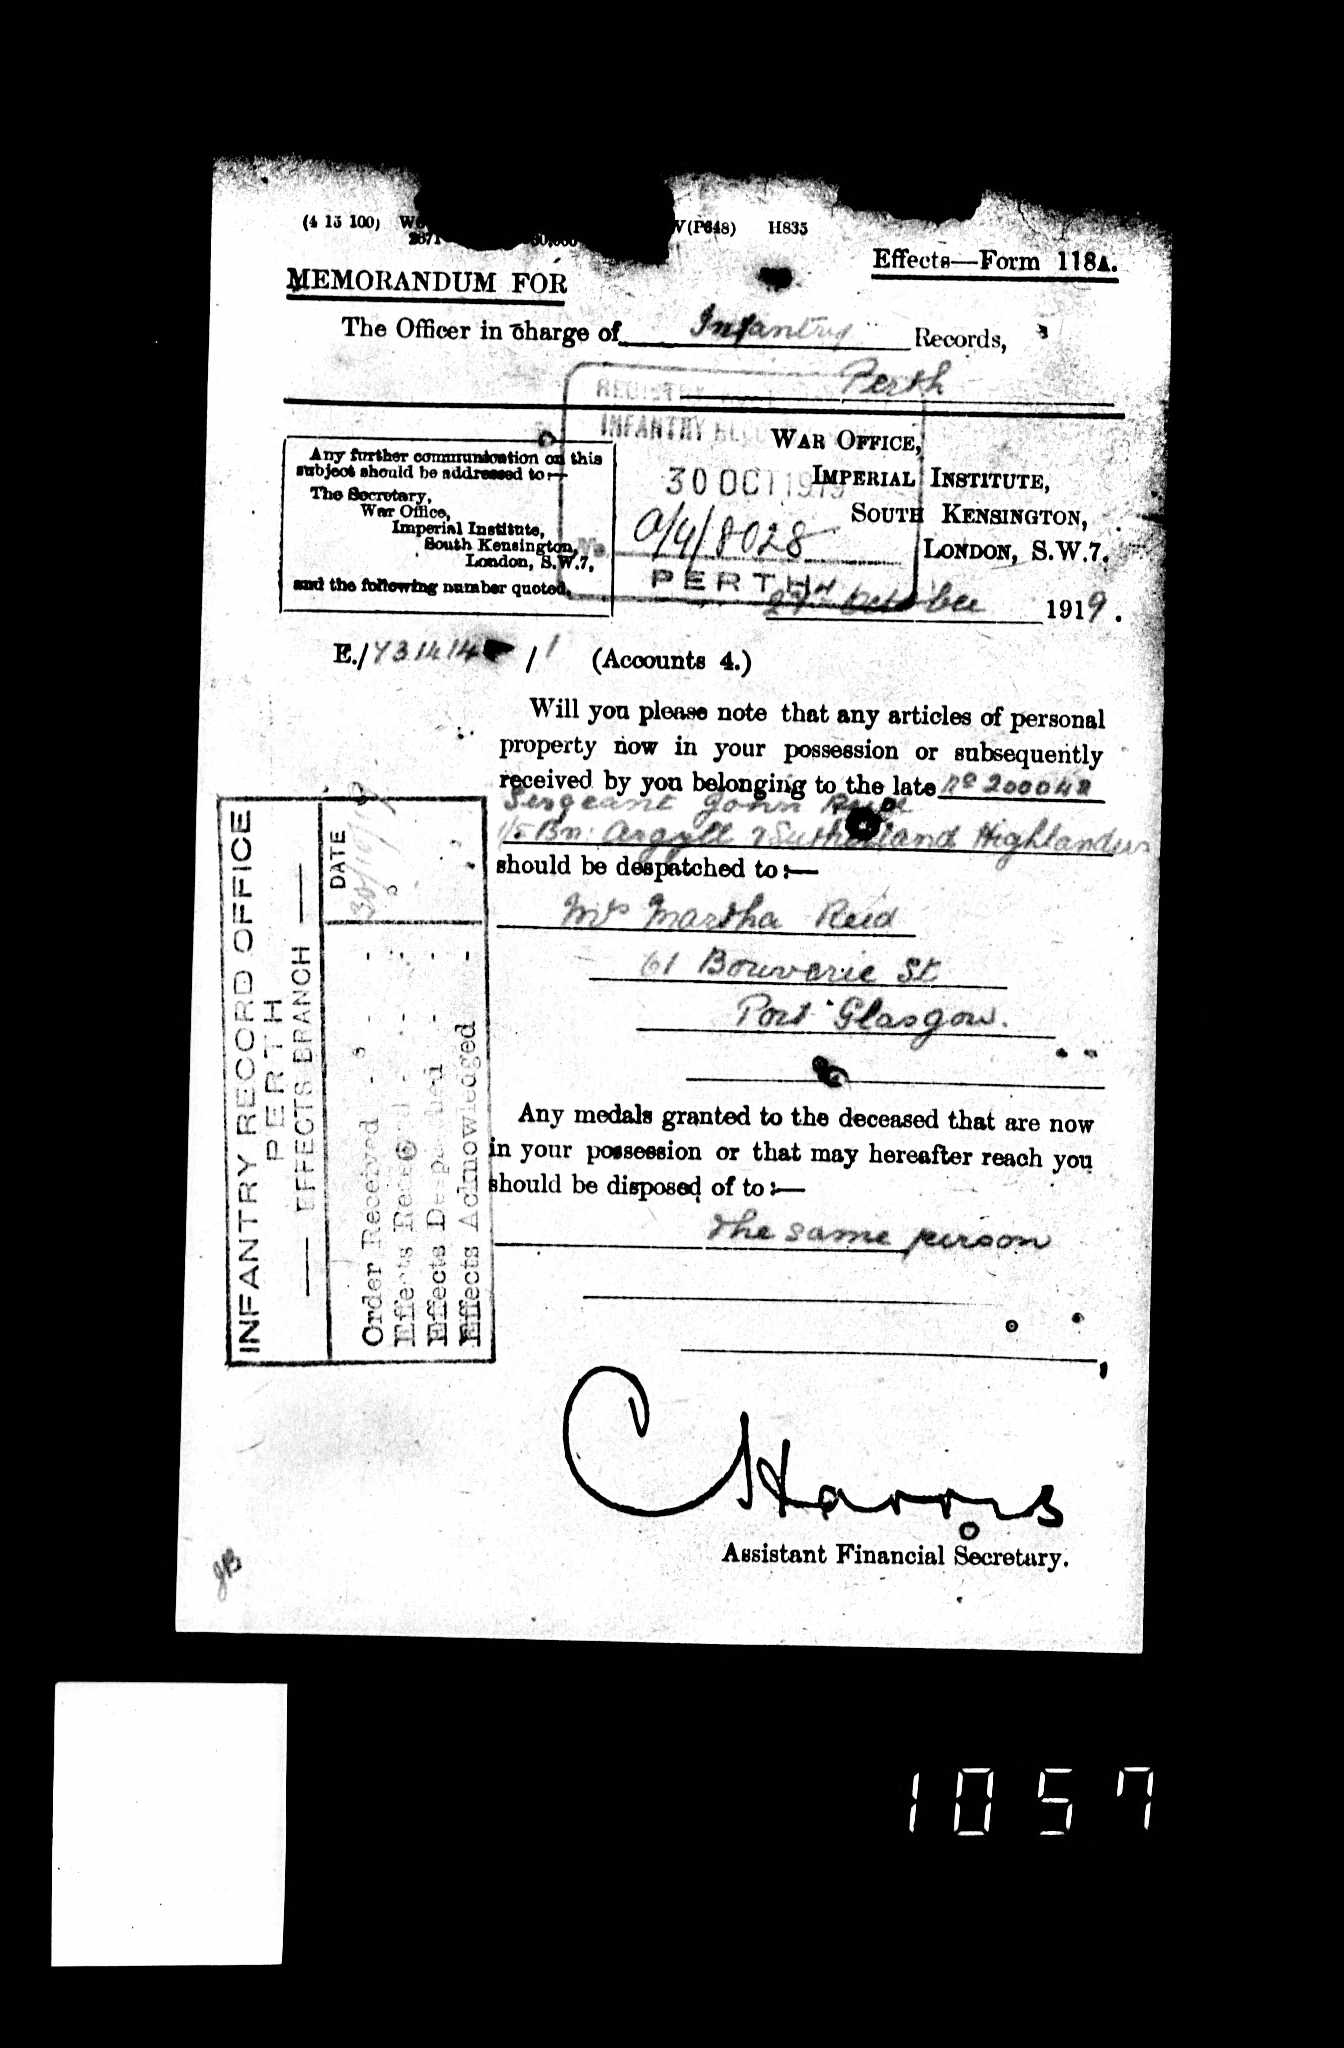 (4 15 100) V(P648) H835
Effects—Form 118A.
MEMORANDUM FOR
The Officer in charge of Infantry Records,
Perth
INFANTRY
30 OCT 1919
No. a/4/8028
PERTH
WAR OFFICE,
IMPERIAL INSTITUTE,
SOUTH KENSINGTON,
LONDON, S.W.7.
27th October 1919.
Any further communication on this
subject should be addressed to:—
The Secretary,
War Office,
Imperial Institute,
South Kensington,
London, S.W.7,
and the following number quoted.
E./ /1 (Accounts 4.)
Will you please note that any articles of personal
property now in your possession or subsequently
received by you belonging to the late No 200048
Sergeant John
1/5 Bn: Argyll & Sutherland Highlanders
should be despatched to:—
Mrs Martha Reid
61 Bouverie St
Port Glasgow.
Any medals granted to the deceased that are now
in your possession or that may hereafter reach you
should be disposed of to:—
The same person
INFANTRY RECORD OFFICE
PERTH
EFFECTS BRANCH
DATE
30/10/19
Order Received
Effects
Effects Despatched
Effects Acknowledged
C Harris
Assistant Financial Secretary.
JB
1057